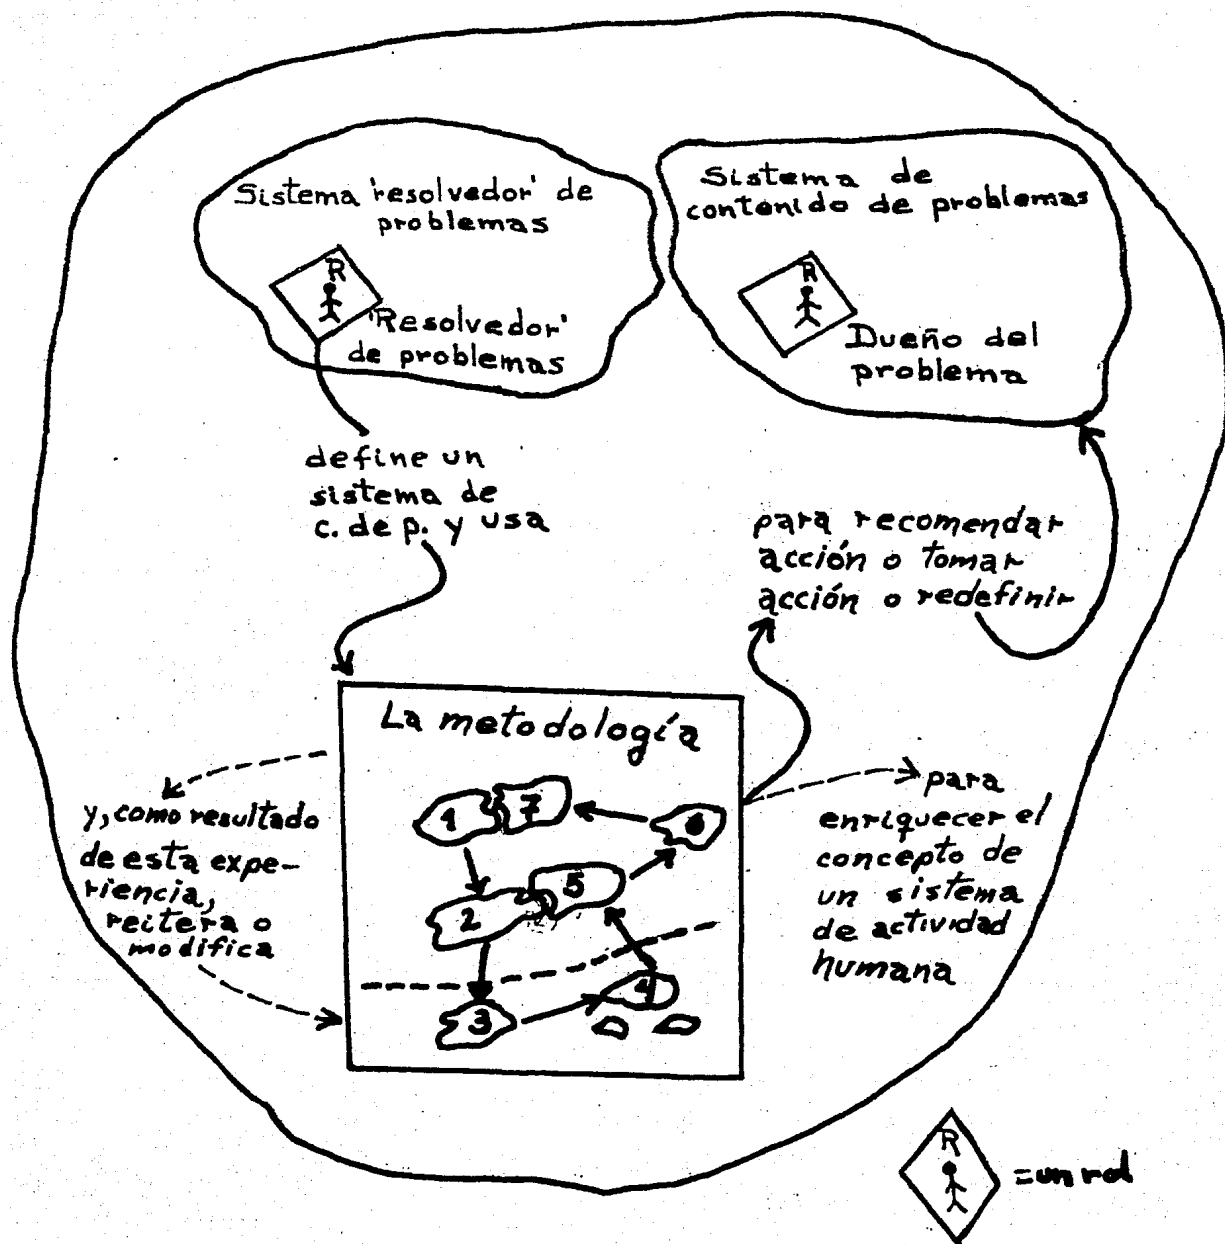 Sistema 'resolvedor' de
problemas
R
'Resolvedor'
de problemas
Sistema de
contenido de problemas
R
Dueño del
problema
define un
sistema de
c. de p. y usa
para recomendar
acción o tomar
acción o redefinir
La metodología
1
7
6
5
2
4
3
y, como resultado
de esta expe-
riencia,
reitera o
modifica
para
enriquecer el
concepto de
un sistema
de actividad
humana
R
=un rol